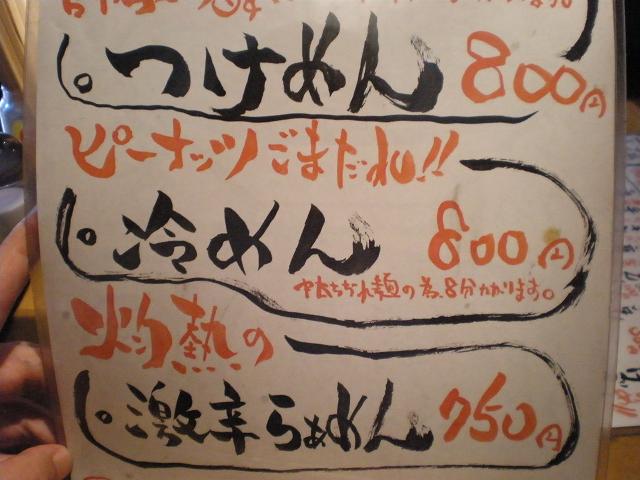 つけめん 800円
ピーナッツごまだれ!!
冷めん 800円
中太ちぢれ麺の為、8分かかります。
灼熱の
激辛らぁめん 750円